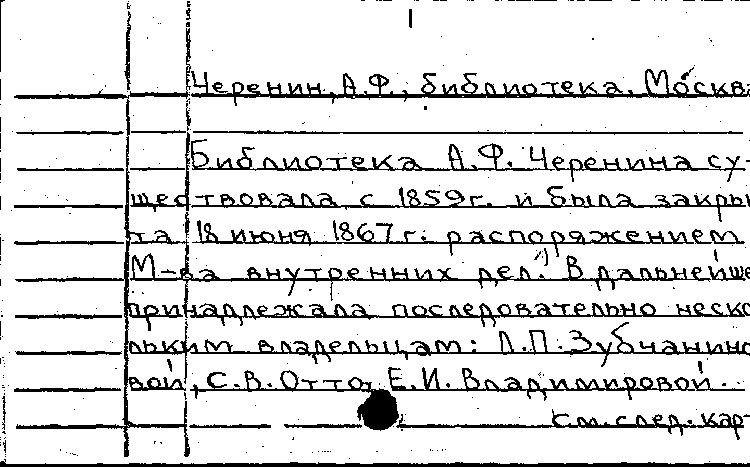 Черенин, А.Ф., библиотека. Москва
Библиотека А.Ф. Черенина су-
ществовала с 1859г. и была закры-
та 18 июня 1867г. распоряжением
М-ва внутренних дел.¹⁾ В дальнейше
принадлежала последовательно неско
льким владельцам: Л.П. Зубчанино
вой, С.В. Отто, Е.И. Владимировой.
см. след. карт